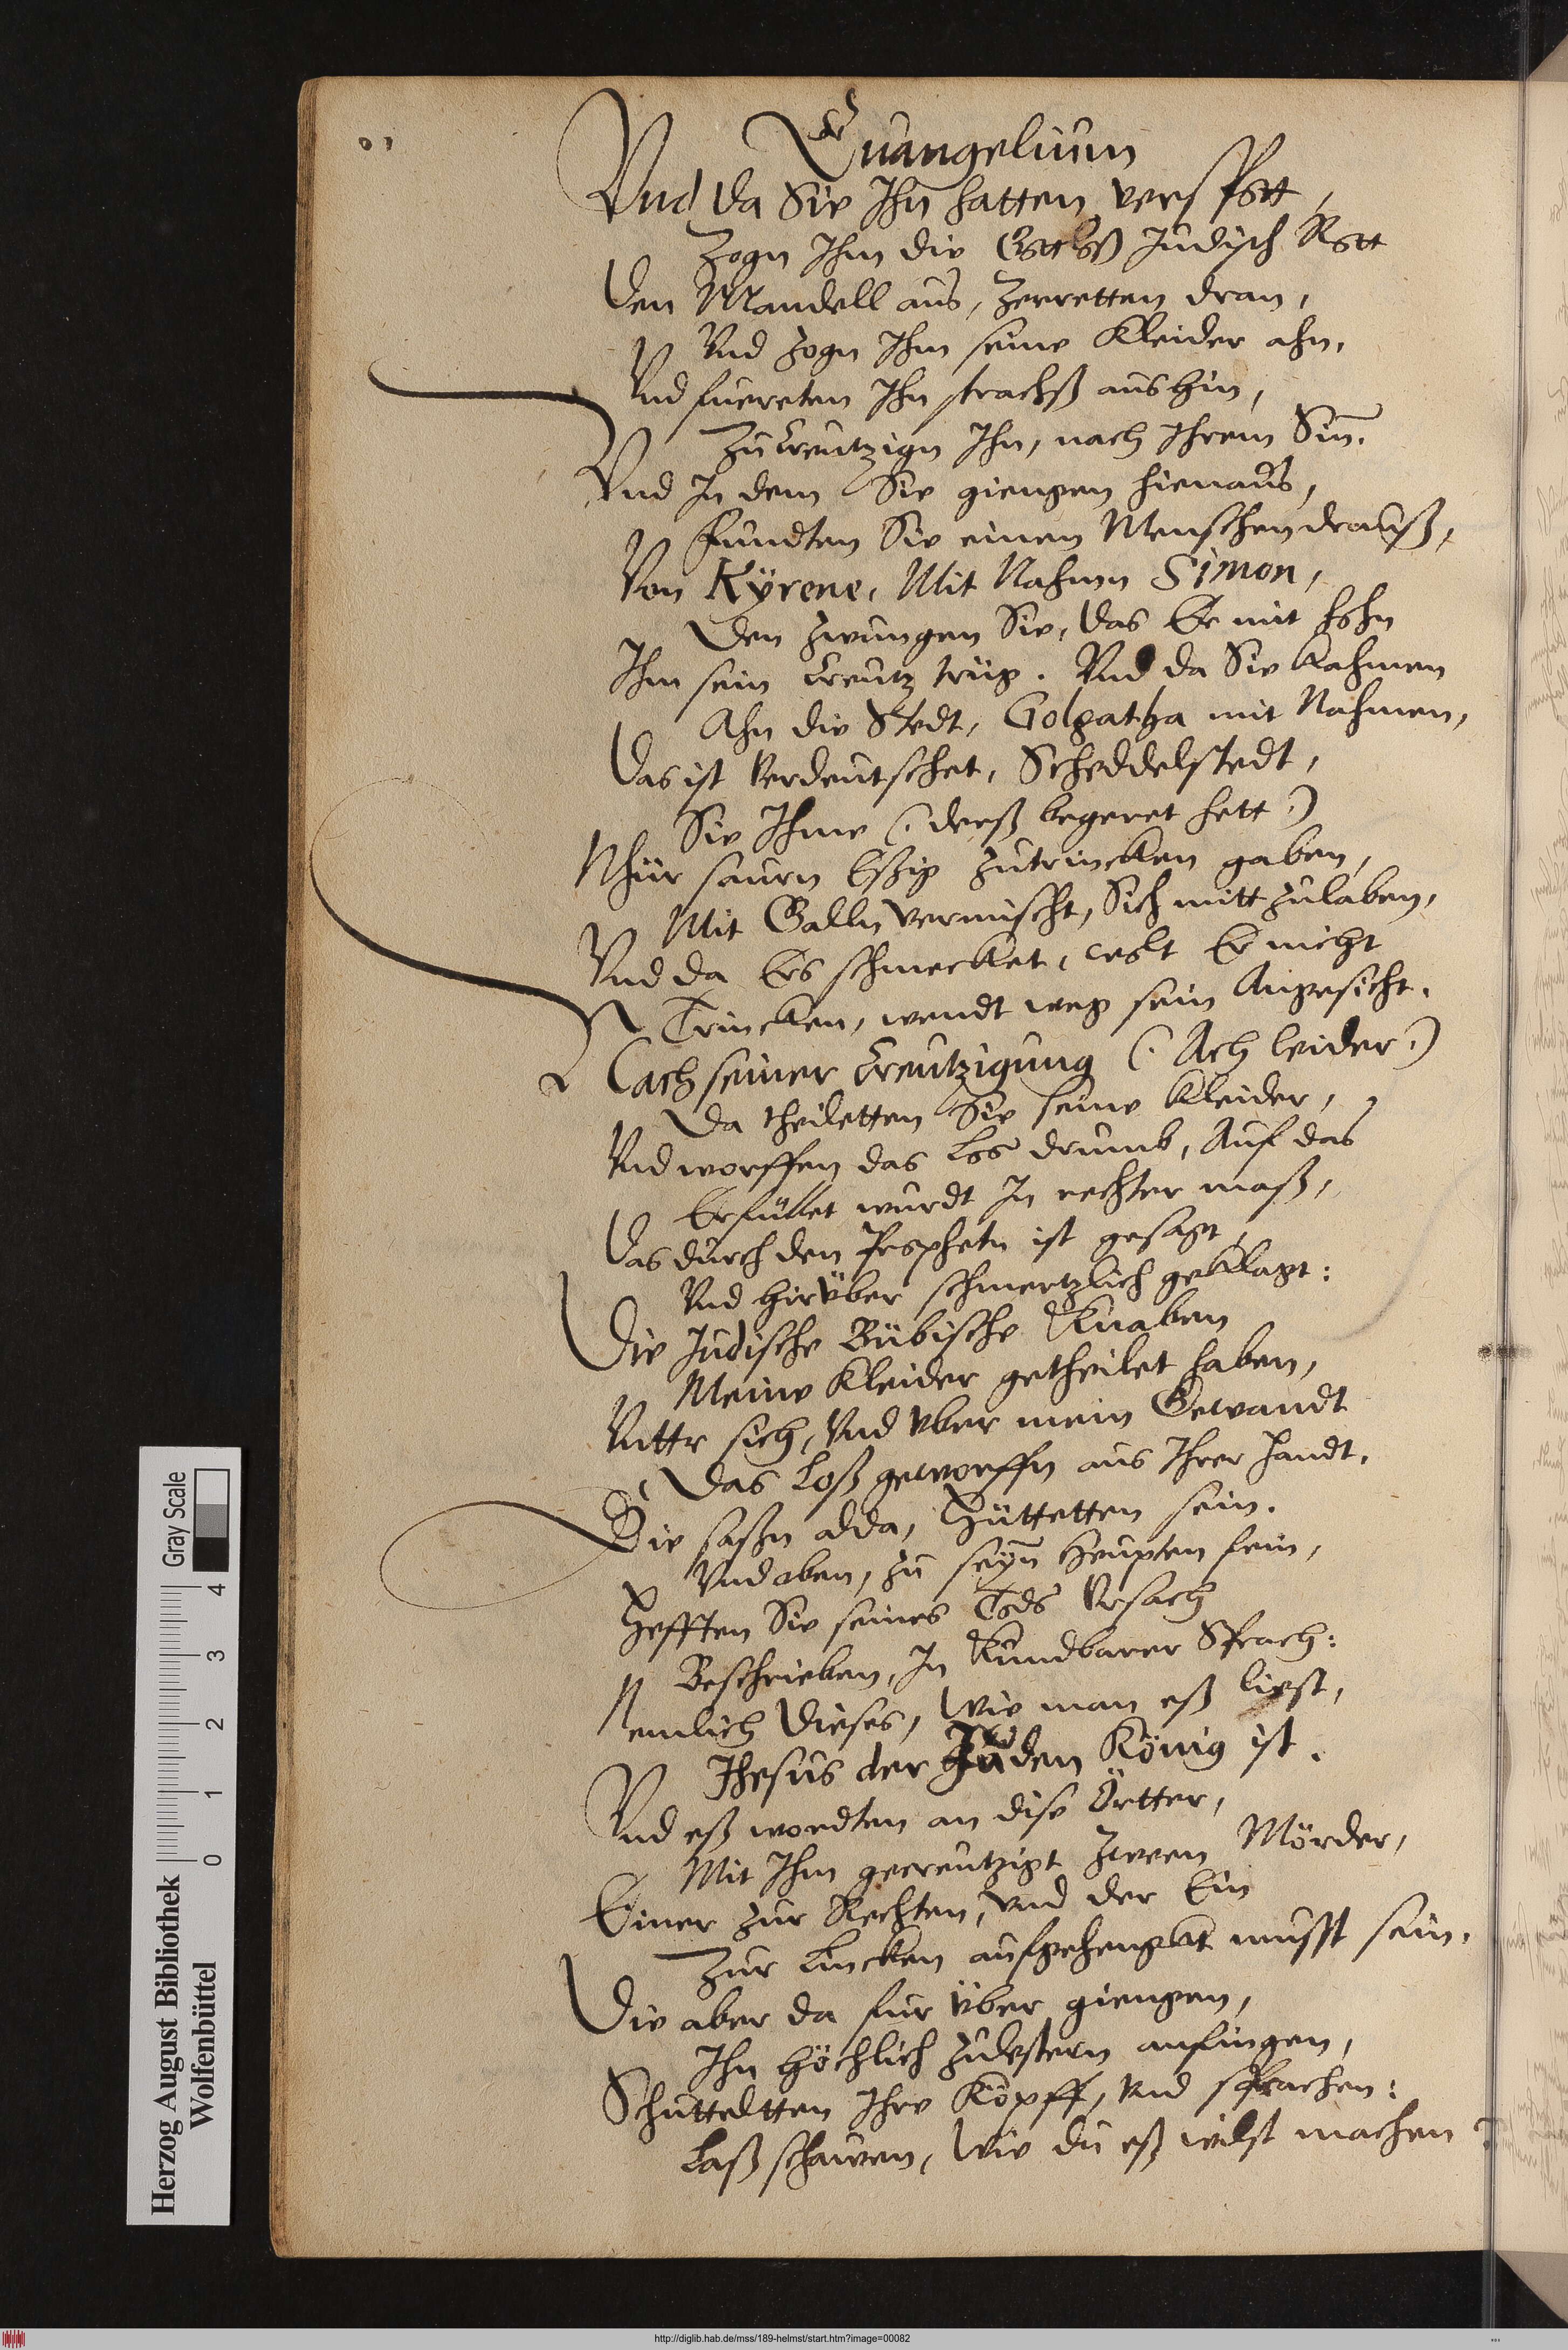 Euangelium
Vnd da Sie Ihn hatten verspott,
Zogn Ihm die Gottloß Jüdisch Rott
Den Mandell aus, zerretten dran,
Vnd zogn Ihm seine Kleider ahn,
Vnd fuereten Ihn strachß aus hin,
Zu Creutzign Ihn, nach Ihrem Sin̄.
Vnd In dem Sie giengen hienaus,
Fundten Sie einen Menschen drauß,
Von Kÿrene, Mit Nahmn Simon,
Den zwungen Sie, das Er mit hohn
Ihm sein Creutz trüg. Vnd da Sie kahmen
Ahn die Stedt, Golgatha mit Nahmen,
Das ist verdeutschet, Scheddelstedt,
Sie Ihme (: derß begeret hett :)
Nhür saurn Eßig zutrincken gaben,
Mit Galln vermischt, Sich mitt zulaben,
Vnd da Ers schmecket, wolt Er nicht
Trincken, wendt weg sein Angesicht.
Nach seiner Creutzigung (: Ach leider :)
Da theiletten Sie seine Kleider,
Vnd worffen das Los drumb, Auf das
Erfüllet wurdt In rechter maß,
Das durch den Prophetn ist gesagt,
Vnd hirüber schmertzlich geklagt:
Die Jüdische Bübische Knaben
Meine Kleider getheilet haben,
Vnttr sich, Vnd vber mein Gewandt
Das Loß geworffn aus Ihrer handt.
Sie saßn alda, Hüttetten sein.
Vnd oben, zu seyn̄ Heupten fein,
Hefften Sie seines Tods Vrsach
Beschrieben, In kundbarer Sprach:
Nemlich dieses, Wie man eß liest,
Jhesus der Juden König ist.
Vnd eß wordten an dise Örtter,
Mit Ihm gecreutzigt zween Mörder,
Einer zur Rechten, vnd der Ein
Zur Lincken aufgehengkt musst sein.
Die aber da für über giengen,
Ihn höchlich zulestern anfingen,
Schutteltten Ihre Köpff, Vnd sprachen:
Laß schawen, Wie du eß wilst machen
Herzog August Bibliothek
Wolfenbüttel
0 1 2 3 4
Gray Scale
http://diglib.hab.de/mss/189-helmst/start.htm?image=00082